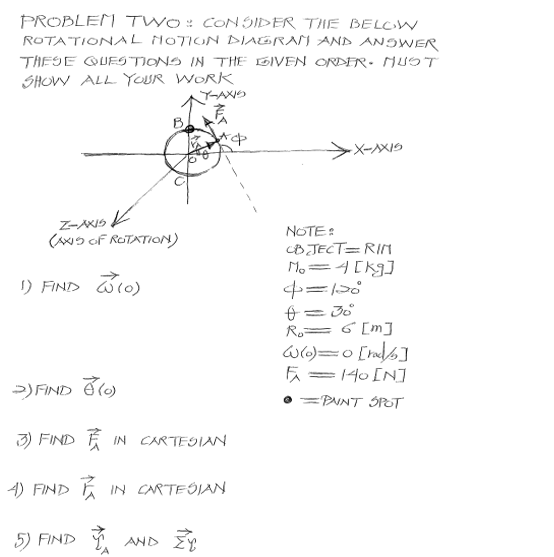 PROBLEM TWO: CONSIDER THE BELOW
ROTATIONAL MOTION DIAGRAM AND ANSWER
THESE QUESTIONS IN THE GIVEN ORDER. MUST
SHOW ALL YOUR WORK
Y-AXIS
F⃗_A
B
A
φ
r⃗_A
θ
O
X-AXIS
C
Z-AXIS
(AXIS OF ROTATION)
NOTE:
OBJECT = RIM
M_O = 4 [kg]
φ = 120°
θ = 30°
R_O = 6 [m]
ω(0) = 0 [rad/s]
F_A = 140 [N]
● = PAINT SPOT
1) FIND ω⃗(0)
2) FIND θ⃗(0)
3) FIND r⃗_A IN CARTESIAN
4) FIND F⃗_A IN CARTESIAN
5) FIND τ⃗_A AND Σ⃗τ